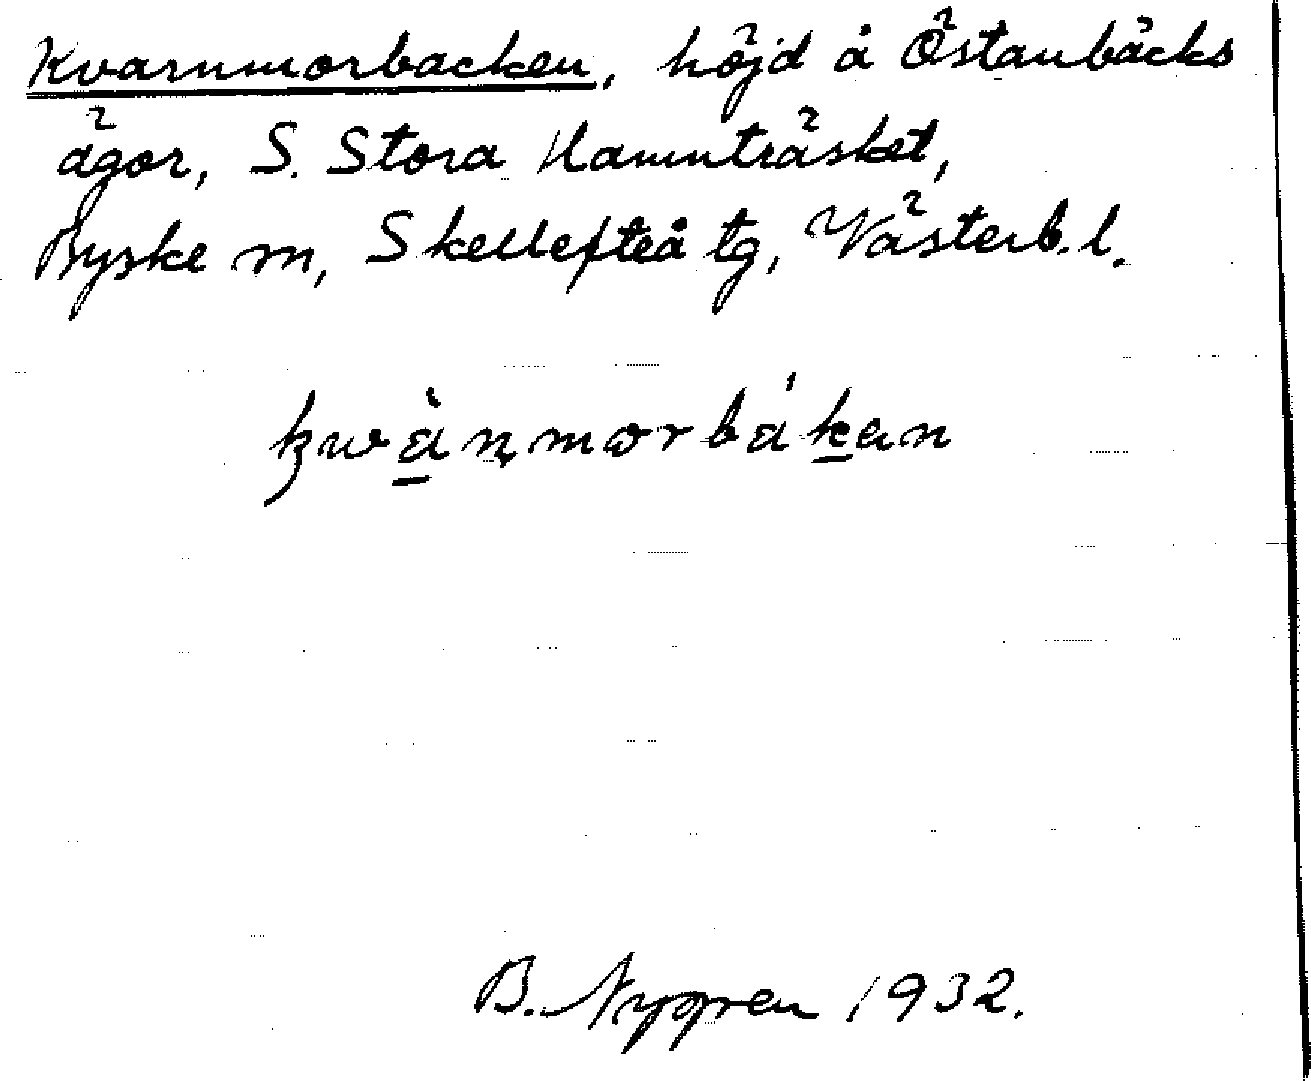 Kvarnmorbacken, höjd å Östanbäcks
ägor, S. Stora Hamnträsket,
Byske sn, Skellefteå tg, Västerb. l.
kwànmorbákan
B. Nygren 1932.